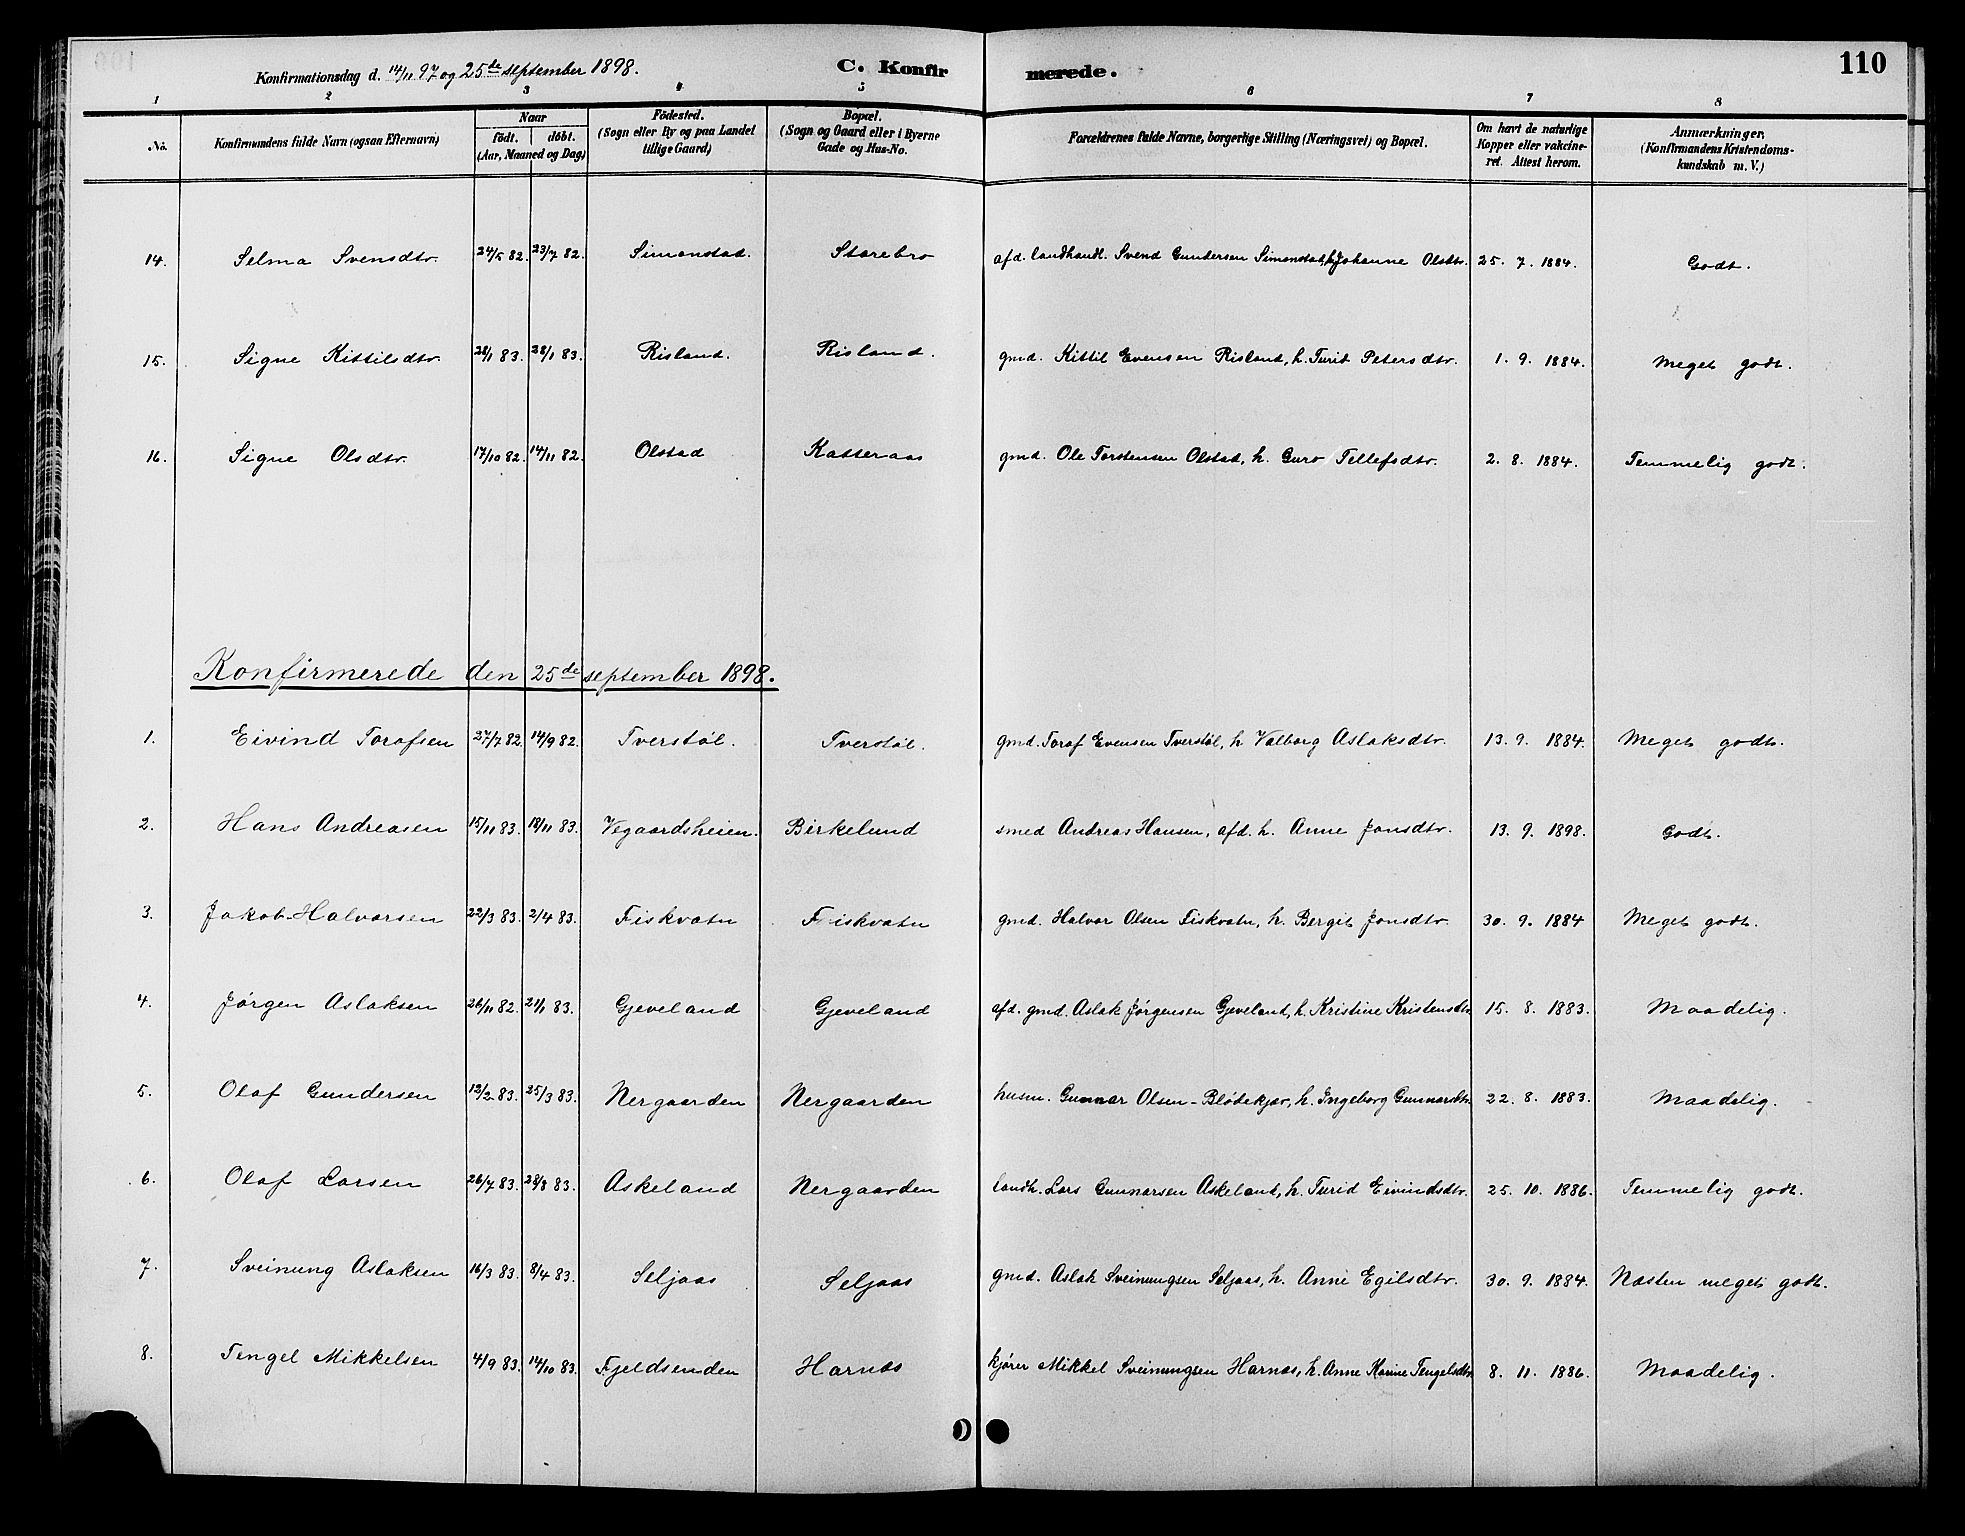 Konfirmationsdag d. 14/11 97 og 25de september 1898. C. Konfirmerede. 110
1 2 3 4 5 6 7 8
No. Konfirmandens fulde Navn (ogsaa Efternavn) Naar födt. döbt. (Aar, Maaned og Dag) Födested. (Sogn eller By og paa Landet tillige Gaard) Bopæl. (Sogn og Gaard eller i Byerne Gade og Hus-No. Forældrenes fulde Navne, borgerlige Stilling (Næringsvei) og Bopæl. Om havt de naturlige Kopper eller vakcineret. Attest herom. Anmærkninger. (Konfirmandens Kristendomskundskab m. V.)
14. Selma Svensdtr. 24/5 82. 23/7 82. Simonstad. Storebro afd. landhandl. Svend Gundersen Simonstad, h. Johanne Olsdtr. 25. 7. 1884. Godt.
15. Signe Kittilsdtr. 28/1 83. 28/1 83. Risland. Risland. gmd. Kittil Evensen Risland, h. Turit Petersdtr. 1. 9. 1884. Meget godt.
16. Signe Olsdtr. 17/10 82. 14/11 82. Olstad Katteraas gmd. Ole Torstensen Olstad, h. Guro Tellefsdtr. 2. 8. 1884. Temmelig godt.
Konfirmerede den 25de september 1898.
1. Eivind Torafsen 27/7 82. 14/9 82. Tverstøl. Tverstøl. gmd. Toraf Evensen Tverstøl, h Valborg Aslaksdtr. 13. 9. 1884. Meget godt.
2. Hans Andreasen 15/11 83. 18/11 83. Vegaardsheien. Birkelund smed Andreas Hansen, afd. h. Anne Jonsdtr. 13. 9. 1898. Godt.
3. Jakob Halvorsen 22/3 83. 2/4 83. Fiskvatn Fiskvatn gmd. Halvor Olsen Fiskvatn, h. Bergit Jonsdtr. 30. 9. 1884 Meget godt.
4. Jørgen Aslaksen 26/11 82. 21/1 83. Gjeveland Gjeveland afd. gmd. Aslak Jørgensen Gjeveland, h. Kristine Kristensdtr. 15. 8. 1883. Maadelig.
5. Olaf Gundersen 12/2 83. 25/3 83. Nergaarden Nergaarden husm. Gunnar Olsen-Blødekjær, h. Ingeborg Gunnarsdtr. 22. 8. 1883. Maadelig.
6. Olaf Larsen 26/7 83. 28/8 83. Askeland Nergaarden landh. Lars Gunnarsen Askeland, h. Turid Eivindsdtr. 25. 10. 1886. Temmelig godt.
7. Sveinung Aslaksen 16/3 83. 8/4 83. Seljaas Seljaas gmd. Aslak Sveinungsen Seljaas, h. Anne Egilsdtr. 30. 9. 1884. Næsten meget godt.
8. Tengel Mikkelsen 4/9 83. 14/10 83. Fjeldsenden Harnæs kjører Mikkel Sveinungsen Harnæs, h. Anne Karine Tengelsdtr. 8. 11. 1886. Maadelig.